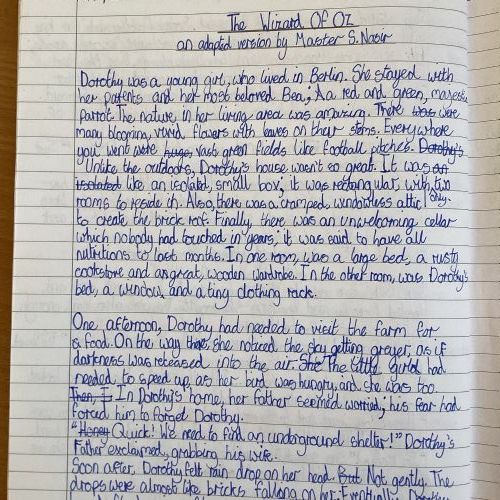 The Wizard Of Oz
an adapted version by Master S. Nasir
Dorothy was a young girl, who lived in Berlin. She stayed with
her parents and her most beloved Bea; a red and green, majestic
parrot. The nature in her living area was amazing. There were
many blooming, vivid, flowers with leaves on their stems. Everywhere
you went were huge vast green fields like football pitches. Dorothy's
Unlike the outdoors, Dorothy's house wasn't so great. It was an
isolated like an isolated, small box; it was rectangular with two
rooms to reside in. Also, there was a cramped, windowless attic only
to create the brick roof. Finally, there was an unwelcoming cellar
which nobody had touched in years; it was said to have all
nutritions to last months. In one room, was a large bed, a rusty
cookstove and a great, wooden wardrobe. In the other room, was Dorothy's
bed, a window, and a tiny clothing rack.
One afternoon, Dorothy had needed to visit the farm for
food. On the way there, she noticed the sky getting grayer, as if
darkness was released into the air. She The little girl had
needed to speed up, as her bird was hungry, and she was too.
Then, I In Dorothy's home, her father seemed worried; his fear had
forced him to forget Dorothy.
"Honey Quick! We need to find an underground shelter!" Dorothy's
Father exclaimed, grabbing his wife.
Soon after, Dorothy felt rain drop on her head. But Not gently. The
drops were almost like bricks falling on her;